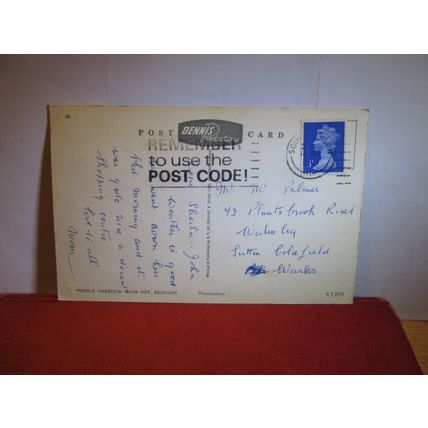 40
POST CARD
DENNIS
Productions
REMEMBER
to use the
POST CODE!
3P
Dear Sheila, John
Weather is good
went down here
this morning and it
was quite nice a decent
shopping centre
love to all
Mom
Mr Palmer
42 Plantsbrook Road
Walmley
Sutton Coldfield
Warks
MIDDLE HARBOUR FROM PIER, BRIXHAM
Photocolour